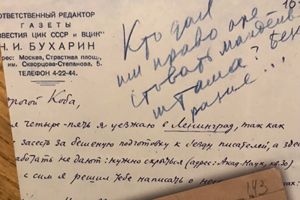 ОТВЕТСТВЕННЫЙ РЕДАКТОР
ГАЗЕТЫ
ИЗВЕСТИЯ ЦИК СССР и ВЦИК"
Н. И. БУХАРИН
Адрес: Москва, Страстная площ.,
им. Скворцова-Степанова, 5.
ТЕЛЕФОН 4-22-44.
Кто дал
им право аре
стовать Мандельш
тама?
Коба,
я уезжаю в Ленинград, так как
засесть за бешеную подготовку к с'езду писателей, а здесь
работать не дают: нужно скрыться (адрес: Акад. Наук,
с сим я решил тебе написать о
143